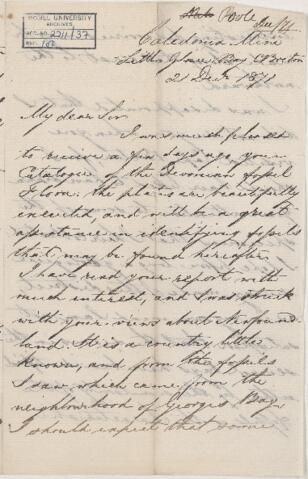 McGILL UNIVERSITY
ARCHIVES
ACC. NO. 2211/37
REF.
Poole
Dec/71
Caledonia Mine
Little Glace Bay C Breton
21 Dec 1871
My dear Sir
I was much pleased
to receive a few days ago your
Catalogue of the Devonian fossil
Flora: the plates are beautifully
executed, and will be a great
assistance in identifying fossils
that may be found hereafter.
I have read your report with
much interest, and I was struck
with your views about Newfound-
land. It is a country little
known, and from the fossils
I saw, which came from the
neighbourhood of Georges Bay,
I should expect that some